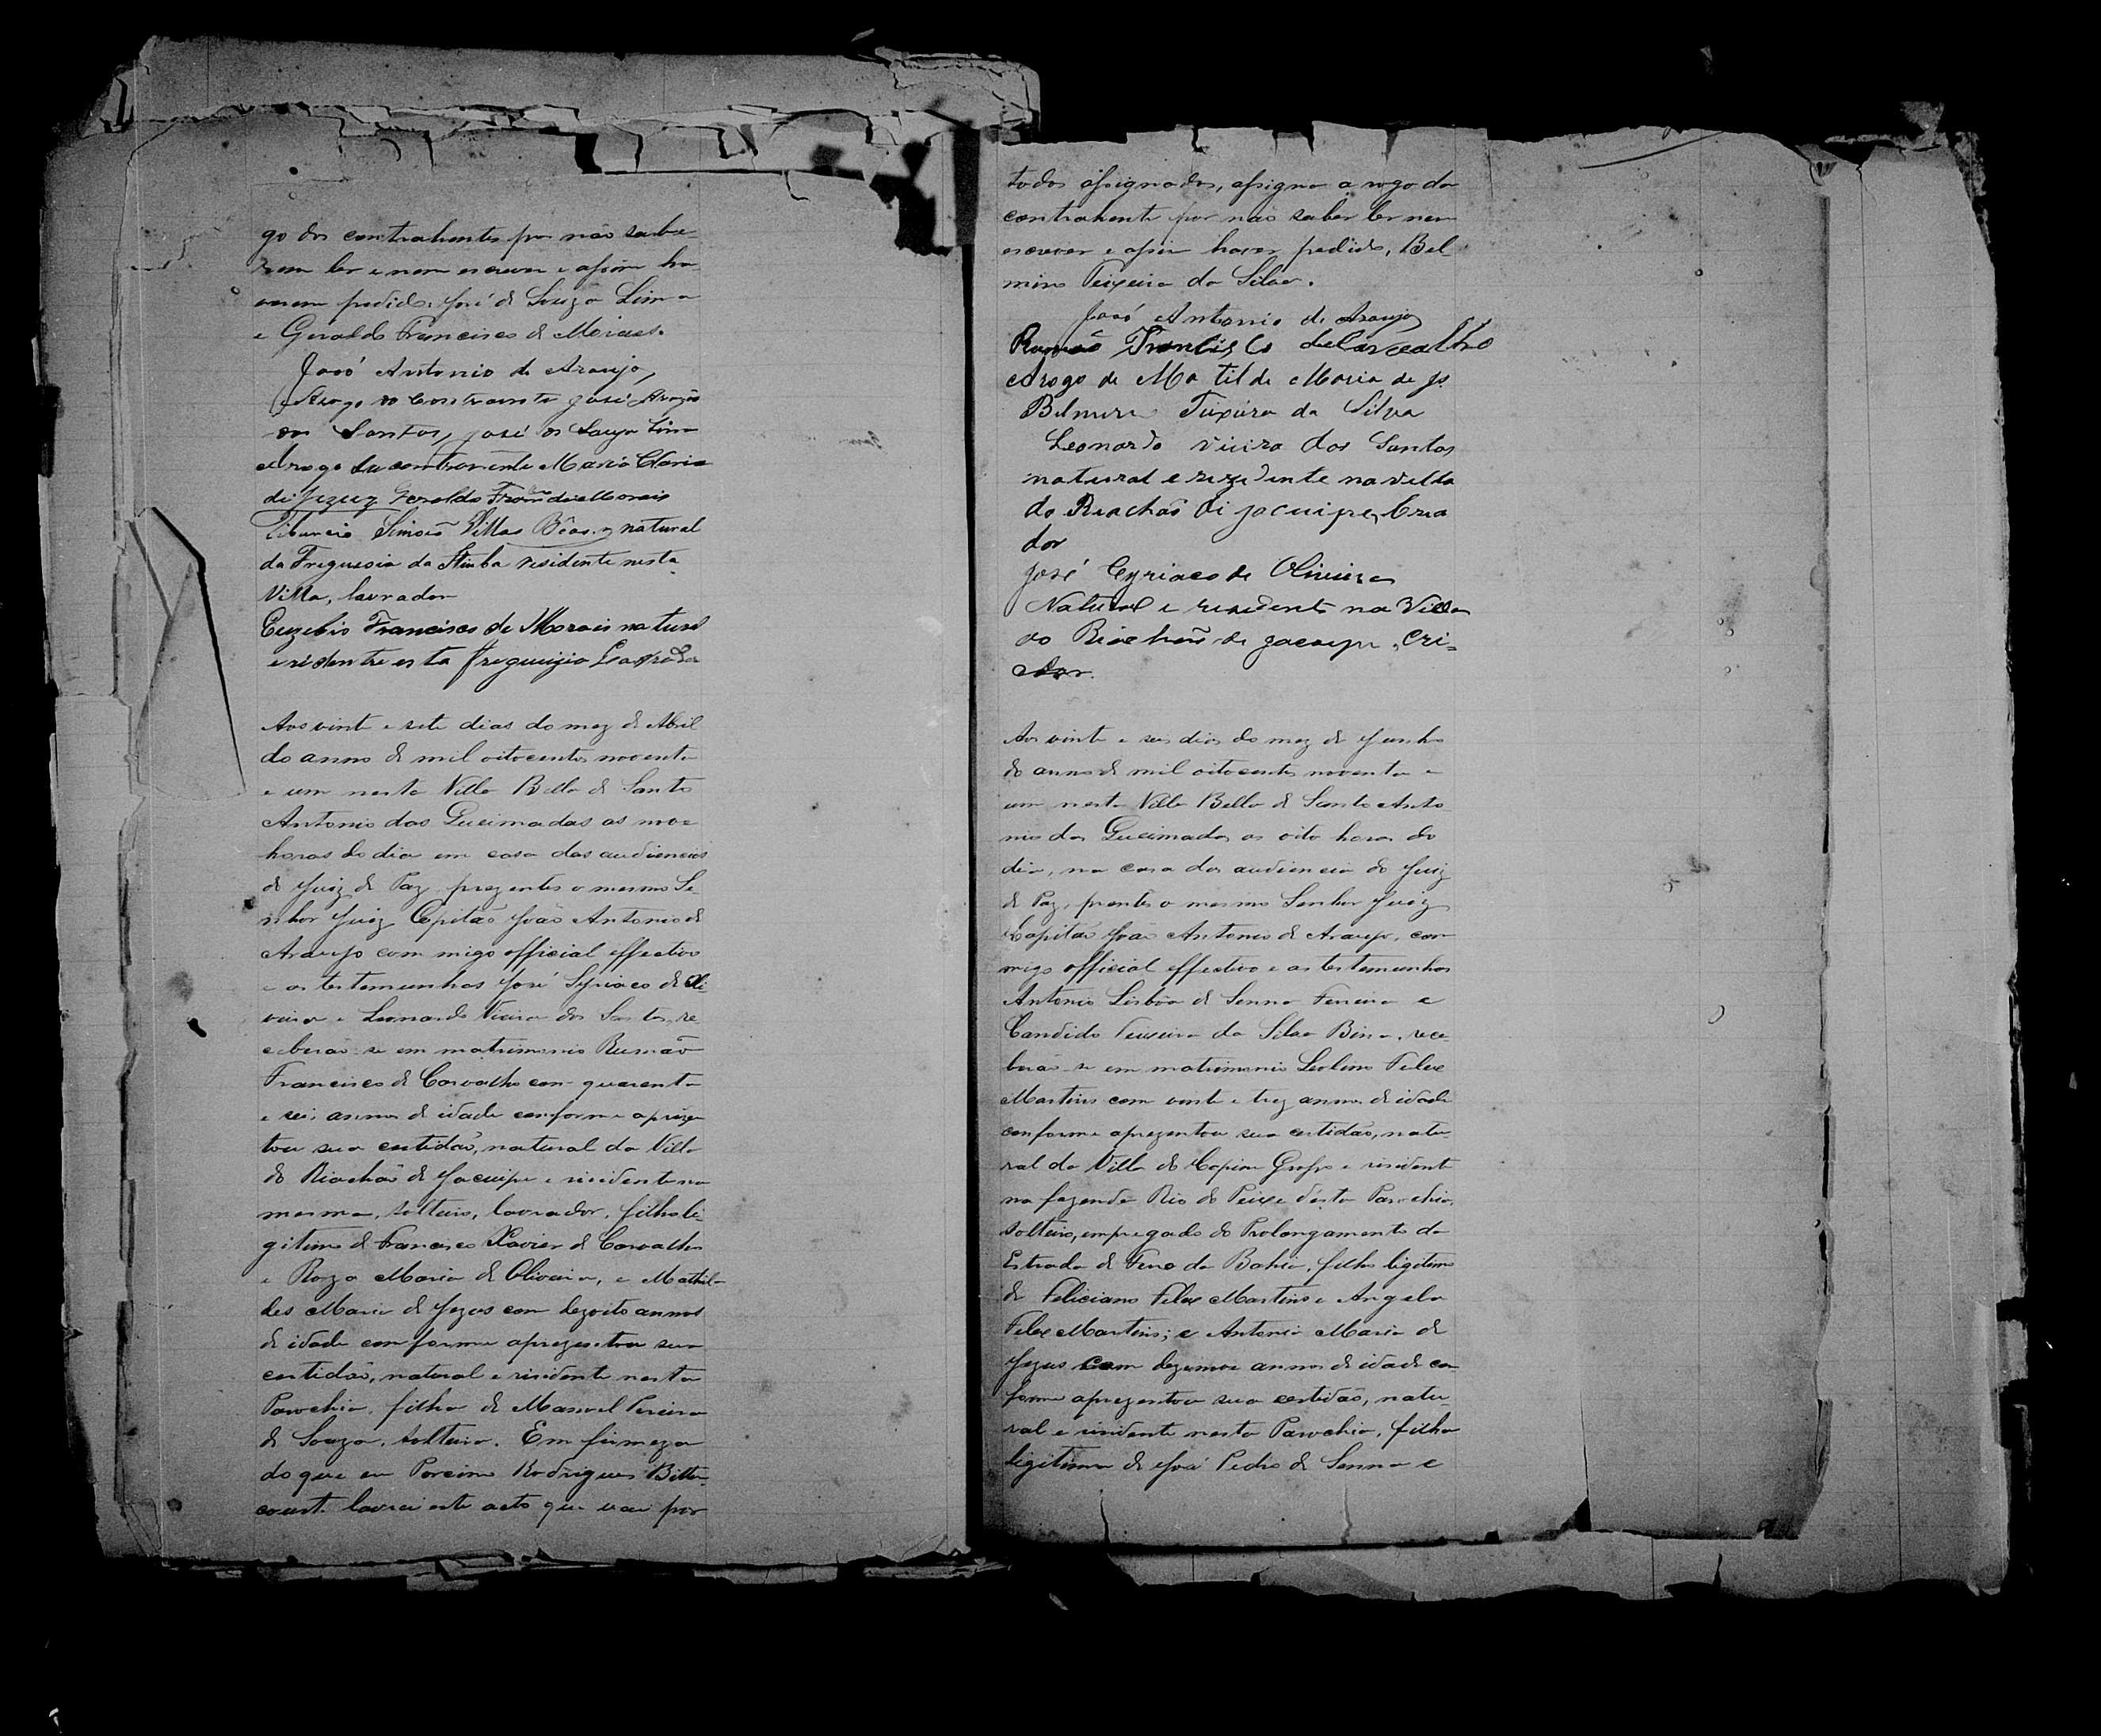 go dos contrahentes por não sabe-
rem ler e nem escrever e assim ha-
verem pedido, José de Souza Lima
e Geraldo Francisco de Moraes.
João Antonio de Araujo
A rogo do contraente José
dos Santos, José de Souza Lima
A rogo da contraente Maria Claria
de Jezuz Geraldo Fran.co de Morais
Tiburcio Simões Villas Bôas, natural
da Freguesia da Itiuba residente nesta
Villa, lavrador
Euzebio Francisco de Morais natural
e residente esta freguizia Lavrador
Aos vinte e sete dias do mez de Abril
do anno de mil oitocentos noventa
e um nesta Villa Bella de Santo
Antonio das Queimadas as nove
horas do dia em casa das audiencias
do Juiz de Paz, prezentes o mesmo Se-
nhor Juiz Capitão João Antonio de
Araujo com migo official effectivo
e as testemunhas José Syriaco de Oli-
veira e Leonardo Vieira dos Santos, re-
ceberão-se em matrimonio Rumão
Francisco de Carvalho com quarenta
e seis annos de idade conforme aprezen
tou sua certidão, natural da Villa
do Riachão de Jacuipe e residente na
mesma, solteiro, lavrador, filho le-
gitimo de Francisco Xavier de Carvalho
e Roza Maria de Oliveira, e Mathil-
des Maria de Jezus com dezoito annos
de idade conforme aprezentou sua
certidão, natural e residente nesta
Parochia, filha de Manoel Pereira
de Souza, solteira. Em firmeza
do que eu Porcino Rodrigues Bitten-
court lavrei este acto que vai por
todos assignados, assigna a rogo da
contrahente por não saber ler nem
escrever e assim haver pedido, Bel-
mino Teixeira da Silva.
João Antonio de Araujo
Rumão Francisco de Carvalho
A rogo de Matilde Maria de Js
Belmiro Teixeira da Silva
Leonardo Vieira dos Santos
natural e rezidente na villa
do Riachão di Jacuipe, Cria
dor
José Cyriaco de Oliveira
Natural e residente na Villa
do Riachão de Jacuipe, Cri-
ador.
Aos vinte e seis dias do mez de Junho
do anno de mil oitocentos noventa e
um nesta Villa Bella de Santo Anto
nio das Queimadas as oito horas do
dia, na casa das audiencia do Juiz
de Paz, prentes o mesmo Senhor Juiz
Capitão João Antonio de Araujo, com
migo official effectivo e as testemunhas
Antonio Lisbôa de Senna Ferreira e
Candido Teixeira da Silva Bina, rece-
berão-se em matrimonio Leolino Felix
Martins com vinte e trez annos de idade
conforme aprezentou sua certidão, natu-
ral da Villa do Capim Grosso e residente
na fazenda Rio do Peixe d'esta Parochia,
solteiro, empregado do Prolongamento da
Estrada de Ferro da Bahia, filho legitimo
de Feliciano Felix Martins e Angela
Felix Martins; e Antonia Maria de
Jezus com dezenove annos de idade con
forme aprezentou sua certidão, natu-
ral e residente nesta Parochia, filha
legitima de José Pedro de Senna e